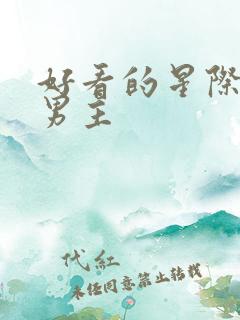 好看的星际
男主
代红
未经同意禁止转载